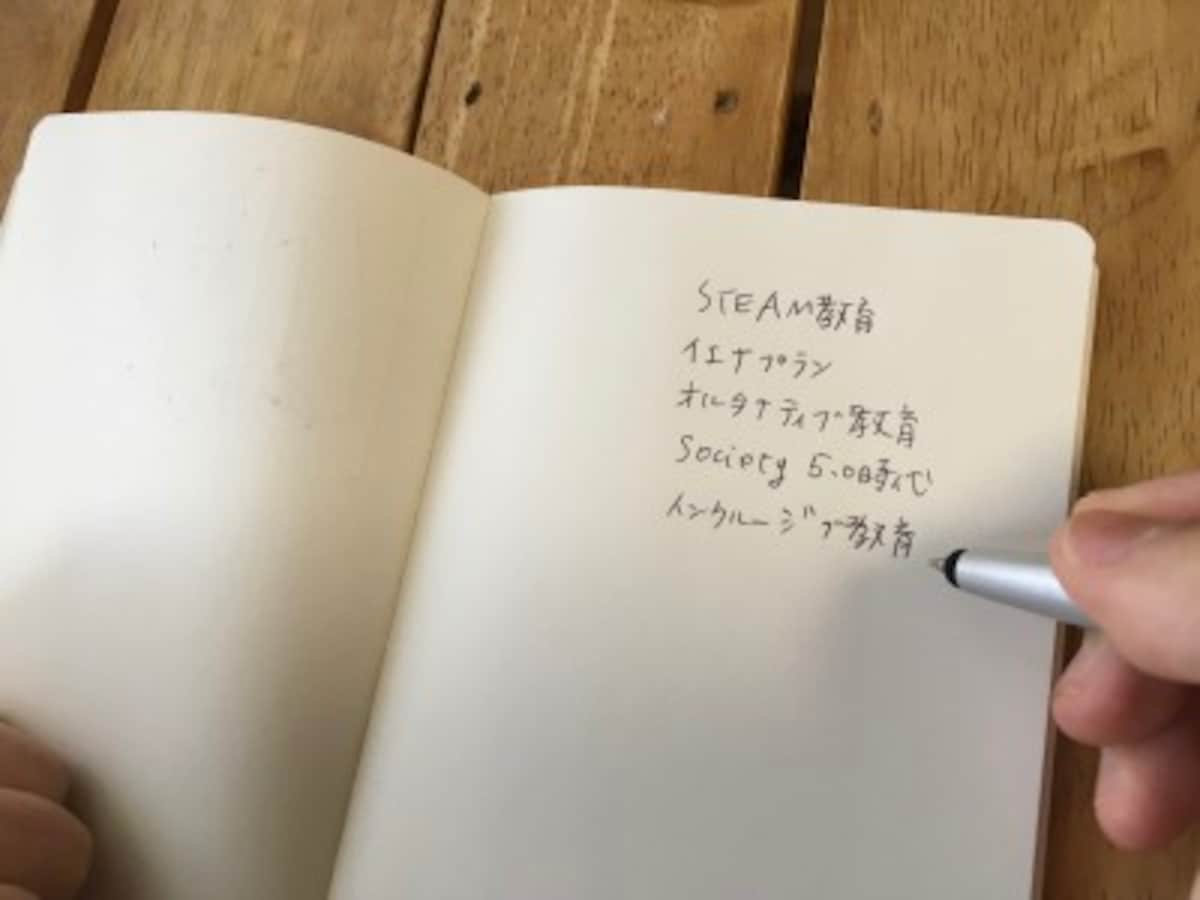 STEAM教育
イエナプラン
オルタナティブ教育
Society 5.0時代
インクルージブ教育